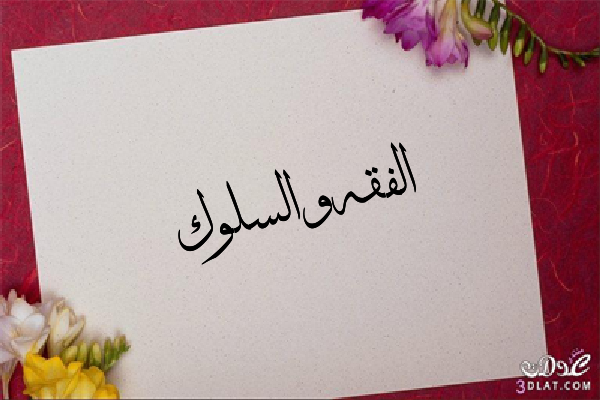 الفقه والسلوك
عدلات
3DLAT.COM